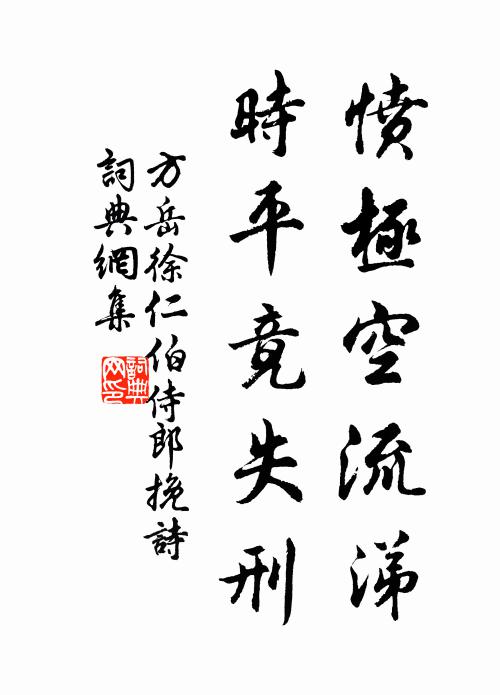 憤極空流涕
時平竟失刑
方岳徐仁伯侍郎挽詩
詞典網集
詞典网印